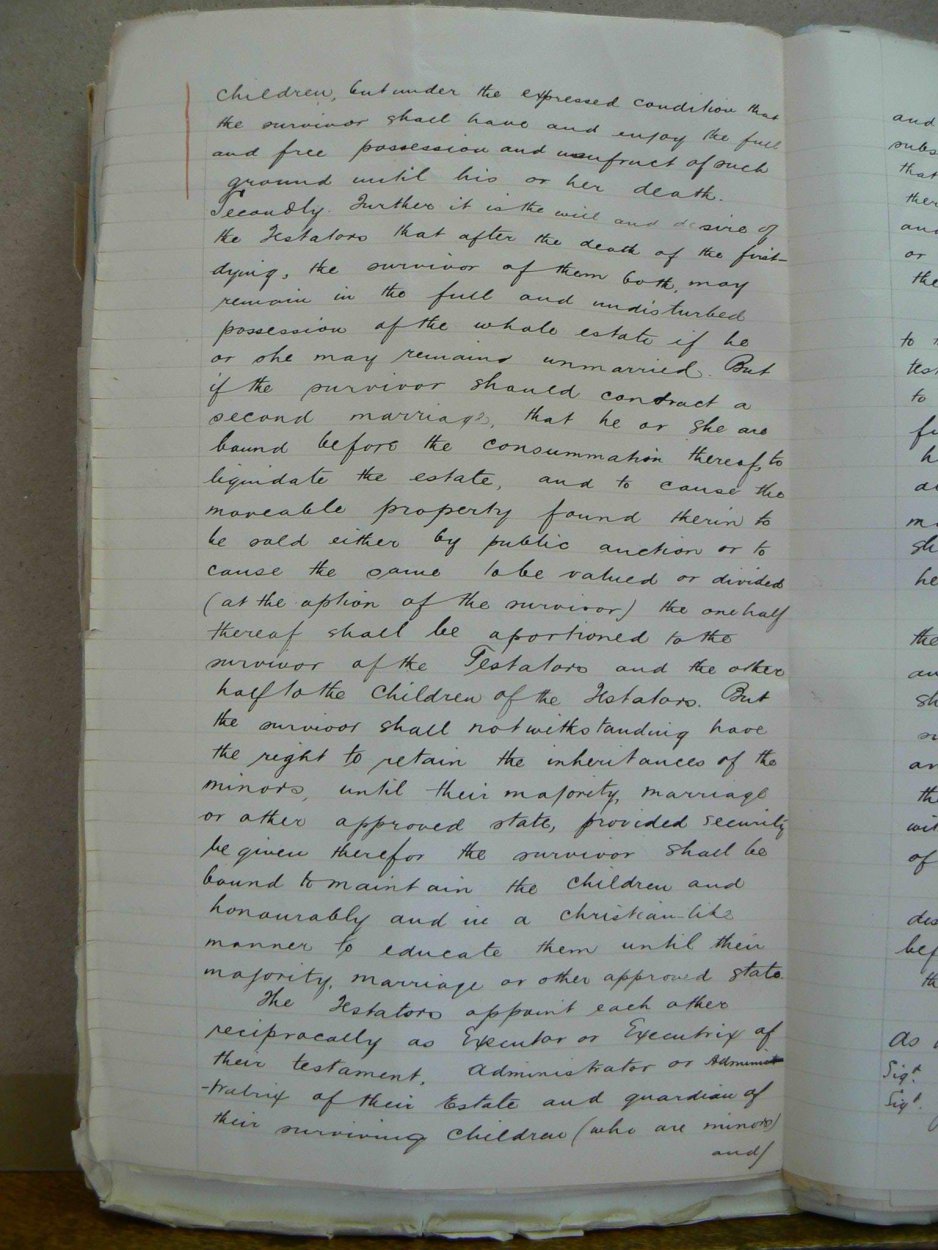 children, but under the expressed condition that
the survivor shall have and enjoy the full
and free possession and usufruct of such
ground until his or her death.
Secondly. Further it is the will and desire of
the Testators that after the death of the first-
dying, the survivor of them both, may
remain in the full and undisturbed
possession of the whole estate if he
or she may remain unmarried. But
if the survivor should contract a
second marriage, that he or she are
bound before the consummation thereof, to
liquidate the estate, and to cause the
moveable property found therin to
be sold either by public auction or to
cause the same to be valued or divided
(at the option of the survivor) the one half
thereof shall be aportioned to the
survivor of the Testators and the other
half to the children of the Testators. But
the survivor shall notwithstanding have
the right to retain the inheritances of the
minors, until their majority, marriage
or other approved state, provided security
be given therefor the survivor shall be
bound to maintain the children and
honourably and in a christian-like
manner to educate them until their
majority, marriage or other approved state
The Testators appoint each other
reciprocally as Executor or Executrix of
their testament, administrator or Adminis
-tratrix of their Estate and guardian of
their surviving children (who are minors)
and/
and
subs
that
ther
and
or
the
to
test
to
fu
h
mo
sh
he
the
au
sh
su
an
th
wit
of
dis
bef
th
As
Sigd.
Sigd.